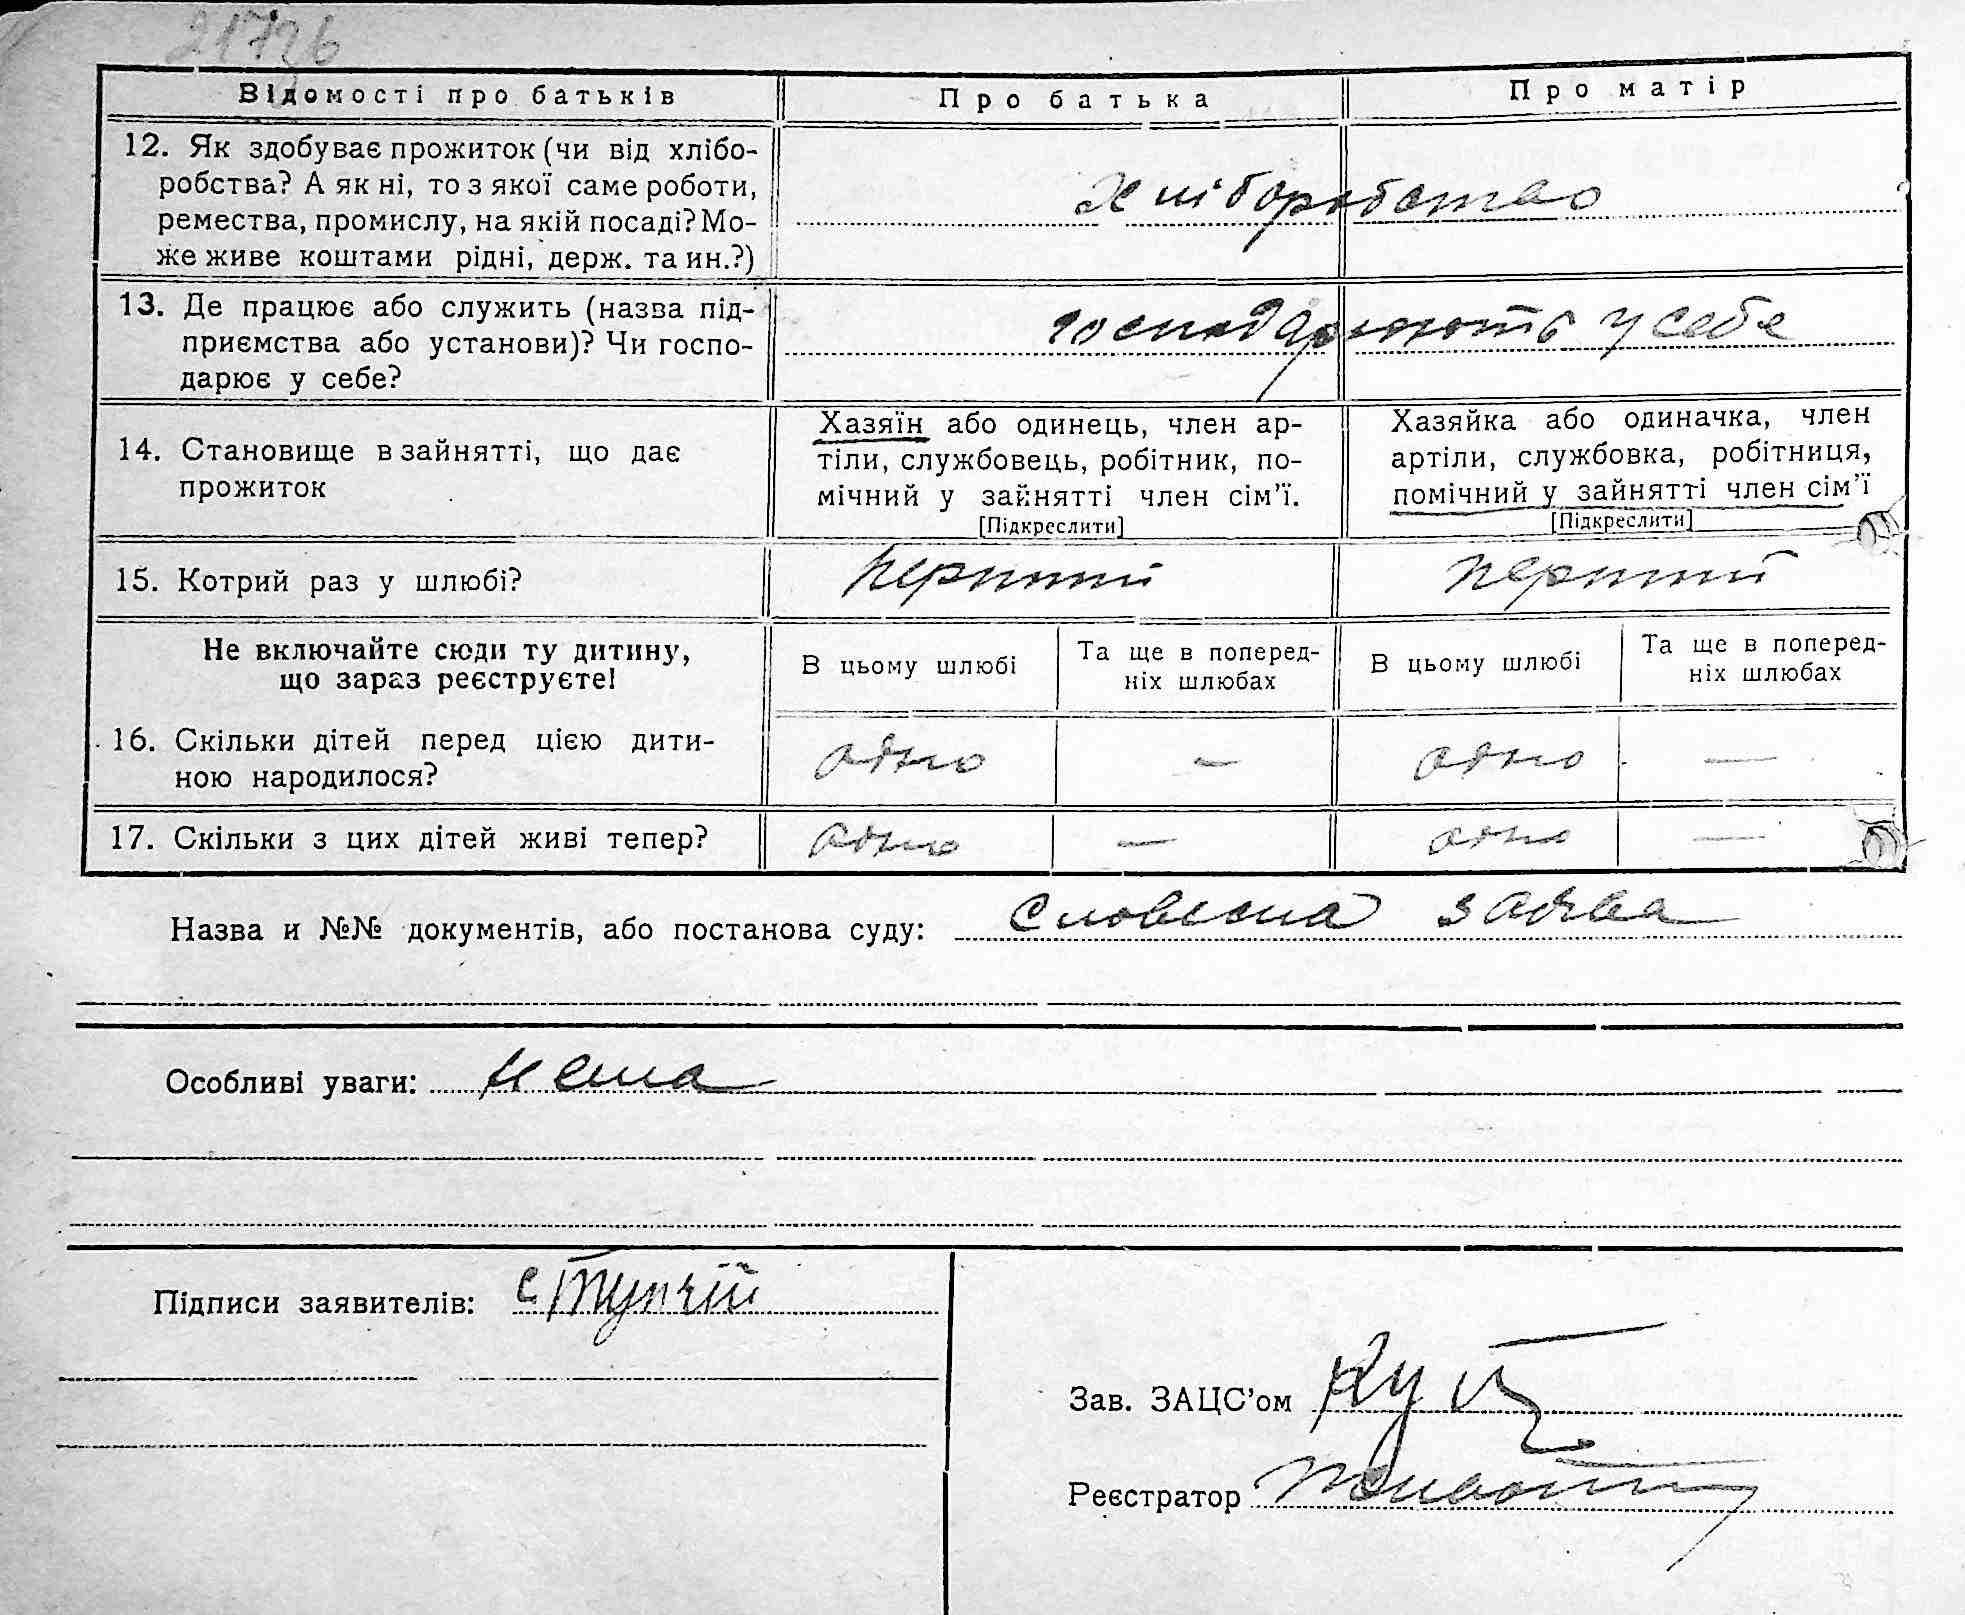 21726
Відомості про батьків
Про батька
Про матір
12. Як здобуває прожиток (чи від хлібо-
робства? А як ні, то з якої саме роботи,
ремества, промислу, на якій посаді? Мо-
же живе коштами рідні, держ. та ин.?)
Хліборобство
13. Де працює або служить (назва під-
приємства або установи)? Чи госпо-
дарює у себе?
господарюють у себе
14. Становище в зайнятті, що дає
прожиток
Хазяїн або одинець, член ар-
тіли, службовець, робітник, по-
мічний у зайнятті член сім'ї.
[Підкреслити]
Хазяйка або одиначка, член
артіли, службовка, робітниця,
помічний у зайнятті член сім'ї
[Підкреслити]
15. Котрий раз у шлюбі?
перший
перший
Не включайте сюди ту дитину,
що зараз реєструєте!
В цьому шлюбі
Та ще в поперед-
ніх шлюбах
В цьому шлюбі
Та ще в поперед-
ніх шлюбах
16. Скільки дітей перед цією дити-
ною народилося?
одно
—
одно
—
17. Скільки з цих дітей живі тепер?
одно
—
одно
—
Назва и №№ документів, або постанова суду: Словесна заява
Особливі уваги: нема
Підписи заявителів: Ступчій
Зав. ЗАЦС'ом
Реєстратор